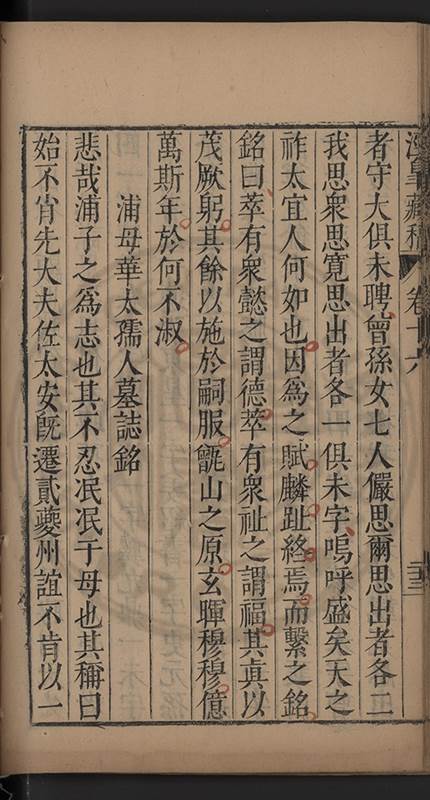 澴臯藏稿 卷十六 二十三
者守大俱未聘曾孫女七人儼思爾思出者各二
我思衆思寬思出者各一俱未字嗚呼盛矣天之
祚太宜人何如也因爲之賦麟趾終焉而繫之銘
銘曰萃有衆懿之謂德萃有衆祉之謂福其眞以
茂厥躬其餘以施於嗣服甑山之原玄暉穆穆億
萬斯年於何不淑
浦母華太孺人墓誌銘
悲哉浦子之爲志也其不忍泯泯于母也其稱曰
始不肖先大夫佐太安旣遷貳夔州誼不肯以一